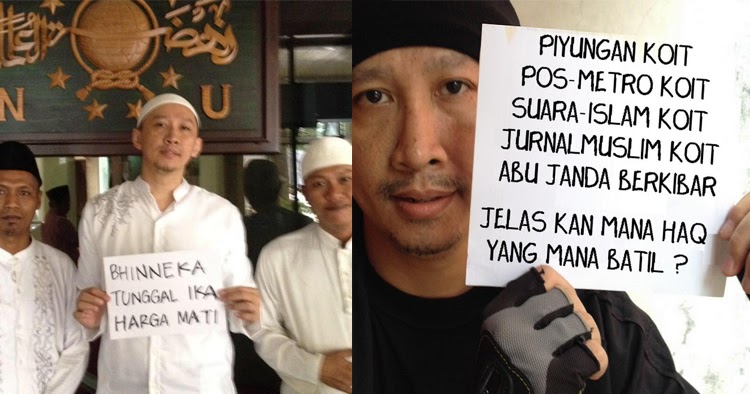 N U
BHINNEKA
TUNGGAL IKA
HARGA MATI
PIYUNGAN KOIT
POS-METRO KOIT
SUARA-ISLAM KOIT
JURNALMUSLIM KOIT
ABU JANDA BERKIBAR
JELAS KAN MANA HAQ
YANG MANA BATIL ?